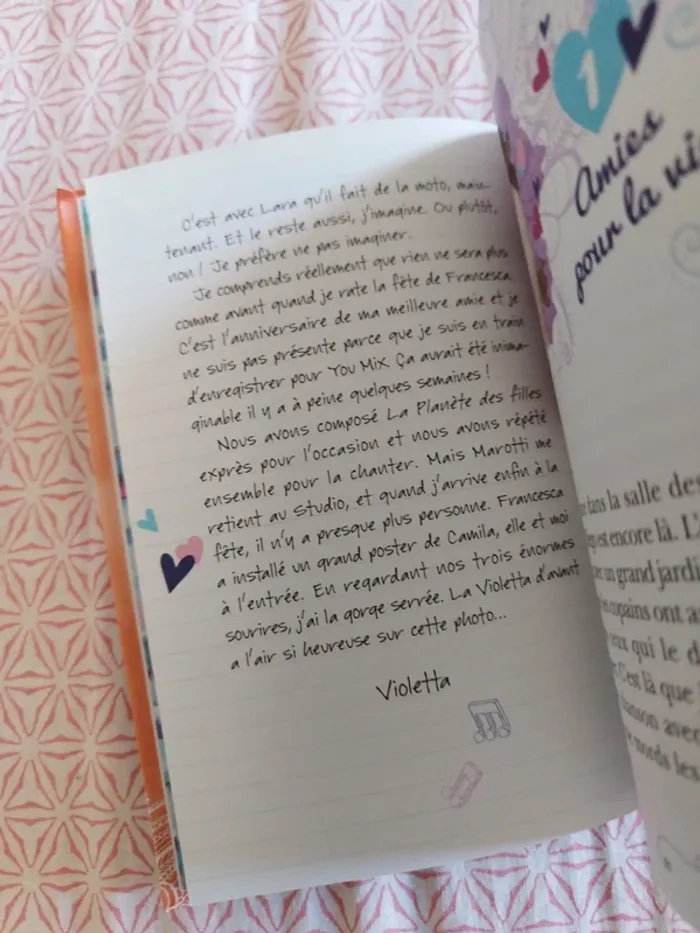 C'est avec Lara qu'il fait de la moto, main-
tenant. Et le reste aussi, j'imagine. Ou plutôt,
non ! Je préfère ne pas imaginer.
Je comprends réellement que rien ne sera plus
comme avant quand je rate la fête de Francesca.
C'est l'anniversaire de ma meilleure amie et je
ne suis pas présente parce que je suis en train
d'enregistrer pour You Mix. Ça aurait été inima-
ginable il y a à peine quelques semaines !
Nous avons composé La Planète des filles
exprès pour l'occasion et nous avons répété
ensemble pour la chanter. Mais Marotti me
retient au Studio, et quand j'arrive enfin à la
fête, il n'y a presque plus personne. Francesca
a installé un grand poster de Camila, elle et moi
à l'entrée. En regardant nos trois énormes
sourires, j'ai la gorge serrée. La Violetta d'avant
a l'air si heureuse sur cette photo...
Violetta
1
Amies
pour la
dans la salle des
est encore là.
un grand jardi
copains ont
qui le d
C'est là que
avec
mords les